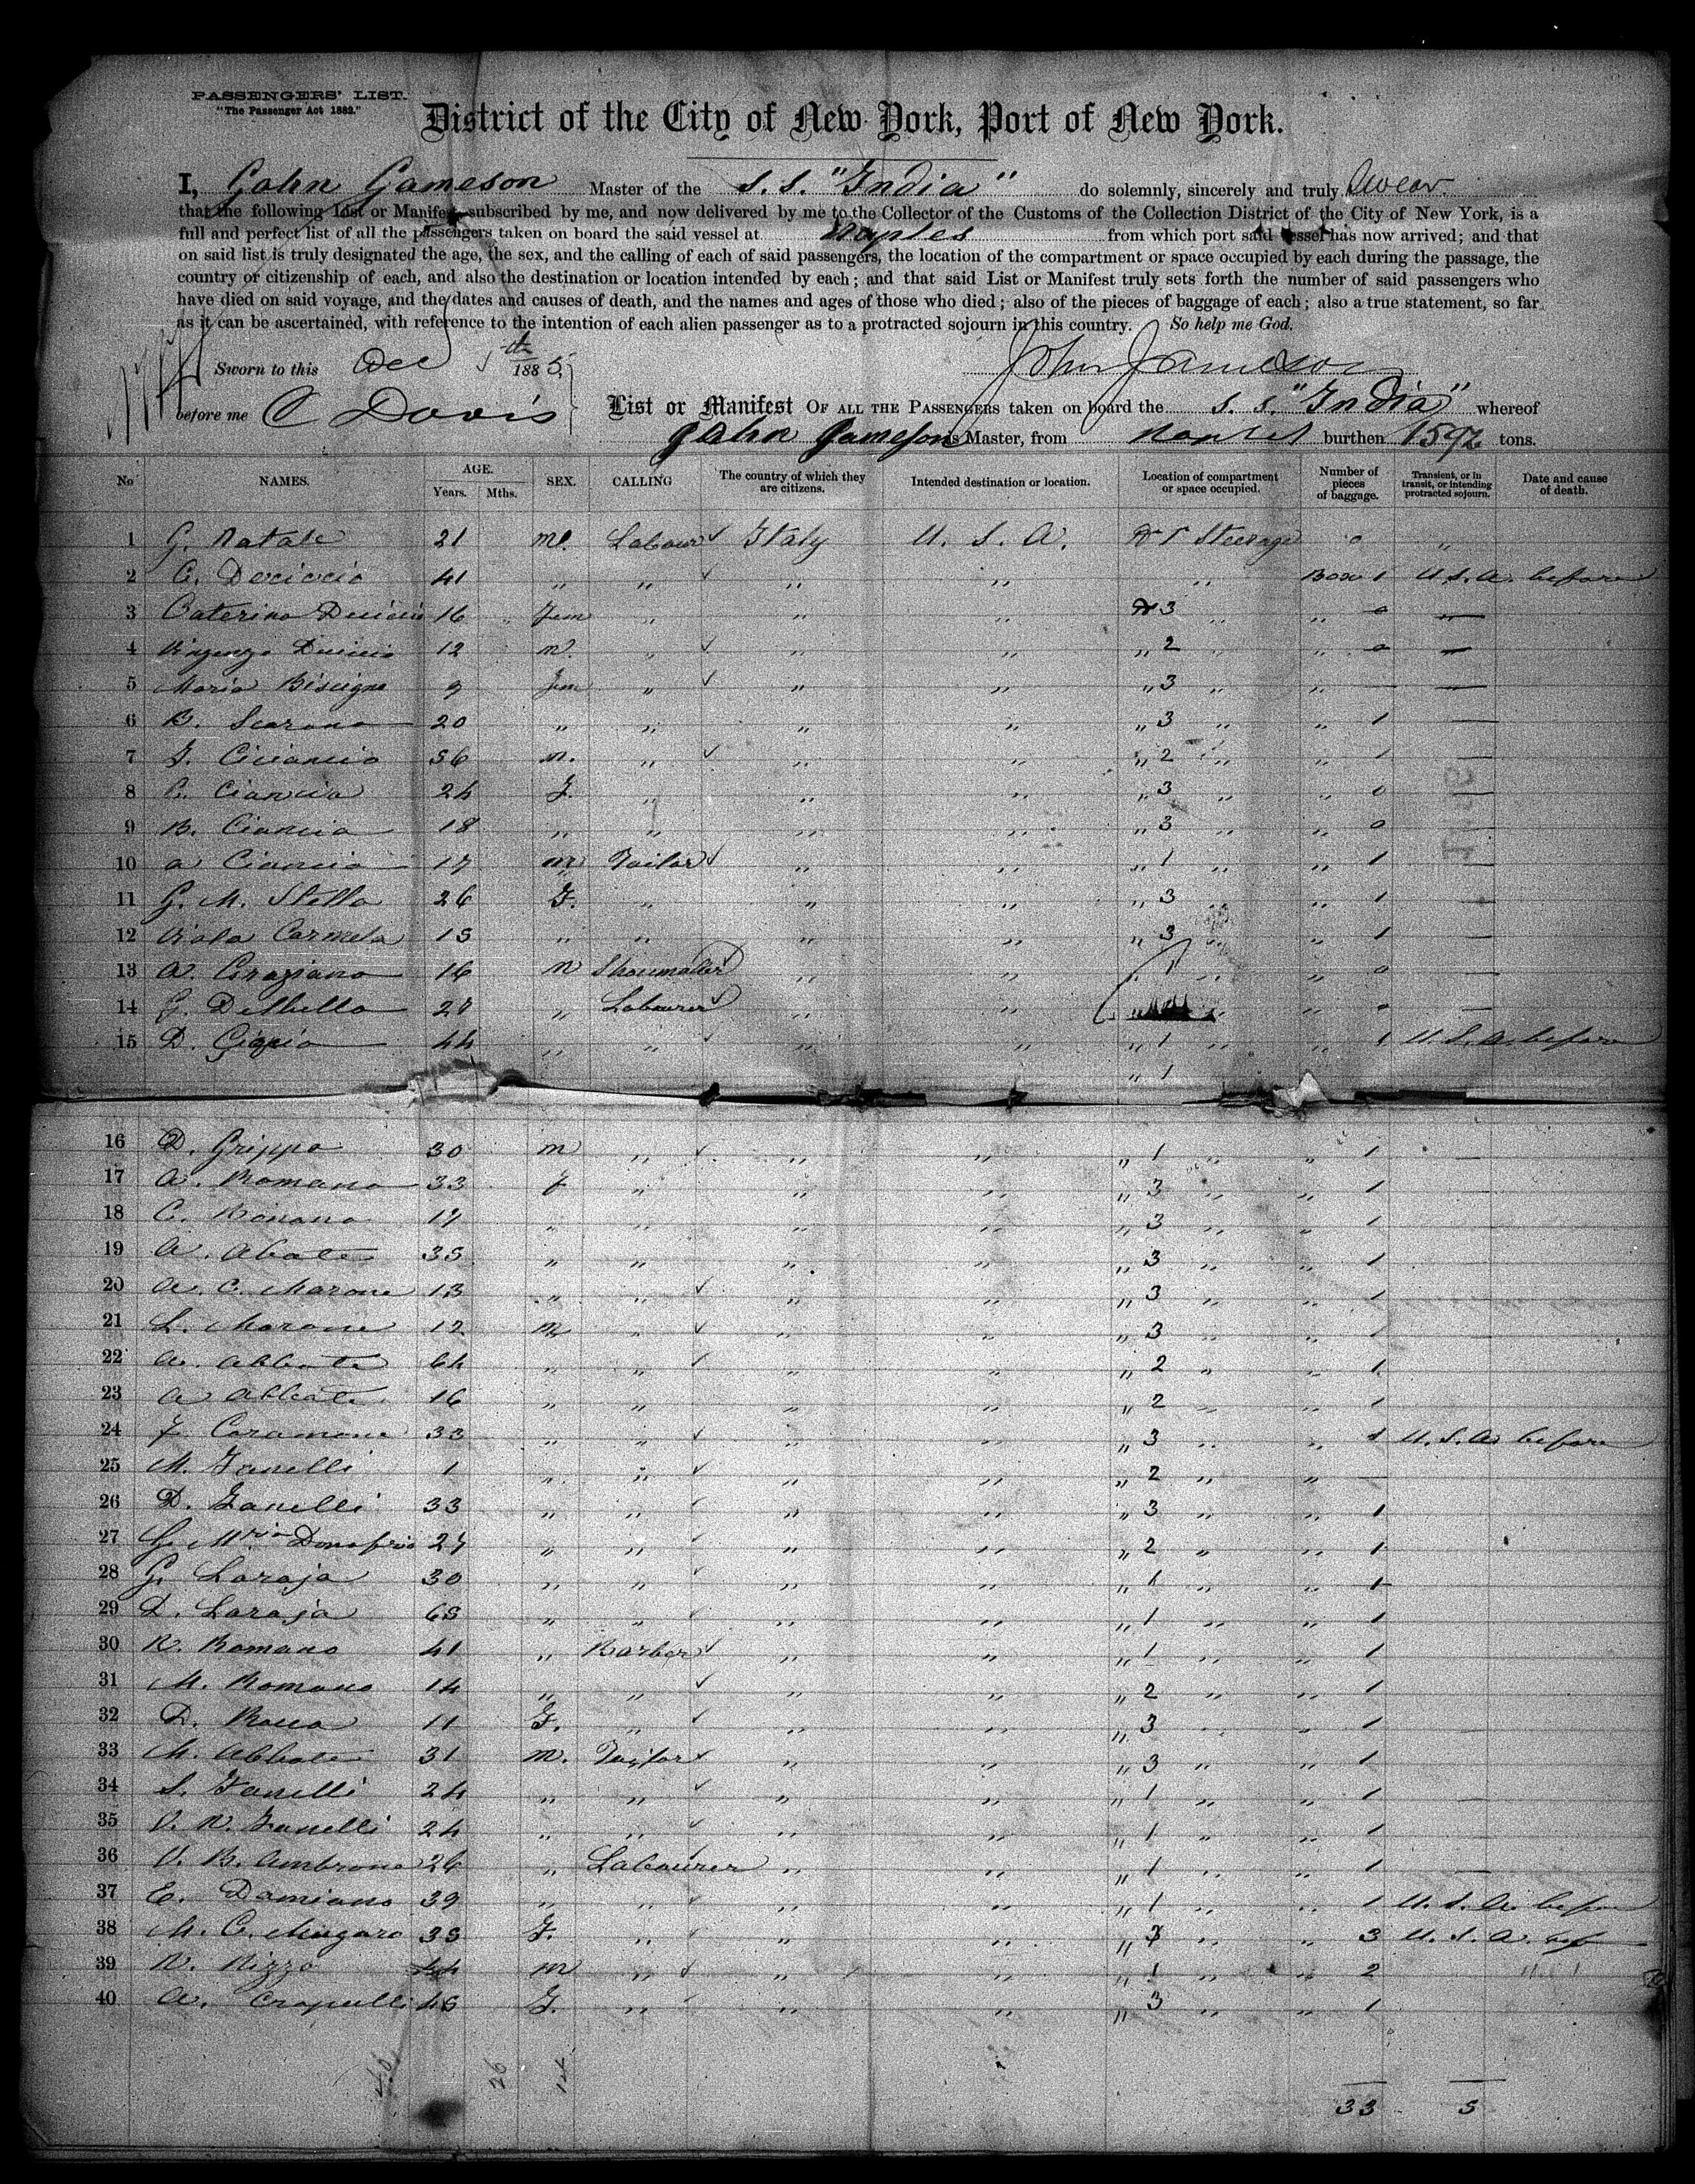 PASSENGERS' LIST.
"The Passenger Act 1882."
District of the City of New York, Port of New York.
I, John Jameson Master of the S.S. "India" do solemnly, sincerely and truly Swear
that the following List or Manifest subscribed by me, and now delivered by me to the Collector of the Customs of the Collection District of the City of New York, is a
full and perfect list of all the passengers taken on board the said vessel at Naples from which port said vessel has now arrived; and that
on said list is truly designated the age, the sex, and the calling of each of said passengers, the location of the compartment or space occupied by each during the passage, the
country or citizenship of each, and also the destination or location intended by each; and that said List or Manifest truly sets forth the number of said passengers who
have died on said voyage, and the dates and causes of death, and the names and ages of those who died; also of the pieces of baggage of each; also a true statement, so far
as it can be ascertained, with reference to the intention of each alien passenger as to a protracted sojourn in this country. So help me God.
Sworn to this Dec 5th 1885 John Jameson
before me C Davis List or Manifest OF ALL THE PASSENGERS taken on board the S.S. "India" whereof
John Jameson is Master, from Naples burthen 1592 tons.
No NAMES. AGE. Years. Mths. SEX. CALLING The country of which they are citizens. Intended destination or location. Location of compartment or space occupied. Number of pieces of baggage. Transient, or in transit, or intending protracted sojourn. Date and cause of death.
1 G. Natale 21 M. Labour Italy U. S. A. Steerage 0 "
2 C. Deciccio 41 " " " " " Box 1 U.S.A. before
3 Caterina 16 Fem " " " 3 " " 0 —
4 12 M. " " " " 2 " " 0 —
5 Maria 9 Fem " " " " 3 " " —
6 B. Scarano 20 " " " " " 3 " " 1 —
7 56 M. " " " " 2 " " 1 —
8 Ciancia 24 F. " " " " 3 " " 0 —
9 B. Ciancia 18 " " " " " 3 " " 0 —
10 A Ciancia 17 M Tailor " " " 1 " " 1 —
11 G. M. Stella 26 F. " " " " 3 " " 1 —
12 Viola Carmela 15 " " " " " 3 " " 1 —
13 A. Graziano 16 M Shoemaker " " " 1 " " 0 —
14 G. Delbello 27 " Labourer " " " " 0 —
15 D. 44 " " " " " 1 " " 1 U.S.A. before
" 1
16 D. Grippo 30 M " " " " 1 " " 1 —
17 A. Romano 33 F " " " " 3 " " 1
18 C. 17 " " " " " 3 " " 1
19 A. Abate 35 " " " " " 3 " " 1
20 A. C. Marone 13 " " " " " 3 " " 1
21 L. Marone 12 M " " " " 3 " " 1
22 A. Abbate 64 " " " " " 2 " " 1
23 A Abbate 16 " " " " " 2 " " 1
24 F. 33 " " " " " 3 " " 1 U.S.A. before
25 M. Fanelli 1 " " " " " 2 " " —
26 D. Fanelli 33 " " " " " 3 " " 1
27 G. Mria Donofrio 27 " " " " " 2 " " 1
28 G. Laraja 30 " " " " " 1 " " 1
29 D. Laraja 65 " " " " " 1 " " 1
30 R. Romano 41 " Barber " " " 1 " " 1
31 M. Romano 14 " " " " " 2 " " 1
32 D. Rocco 11 F. " " " " 3 " " 1
33 M. Abbate 31 M. Tailor " " " 3 " " 1
34 S. Fanelli 24 " " " " " 1 " " 1
35 V. N. Fanelli 24 " " " " " 1 " " 1
36 V. B. Ambrone 26 " Labourer " " " 1 " " 1
37 E. Damiano 39 " " " " " 1 " " 1 U.S.A. before
38 M. C. Mingaro 35 F. " " " " 3 " " 3 U.S.A. bef
39 N. Rizzo 44 M " " " " 1 " " 2
40 A. Crapulli 45 F. " " " " 3 " " 1
26 14
33 5